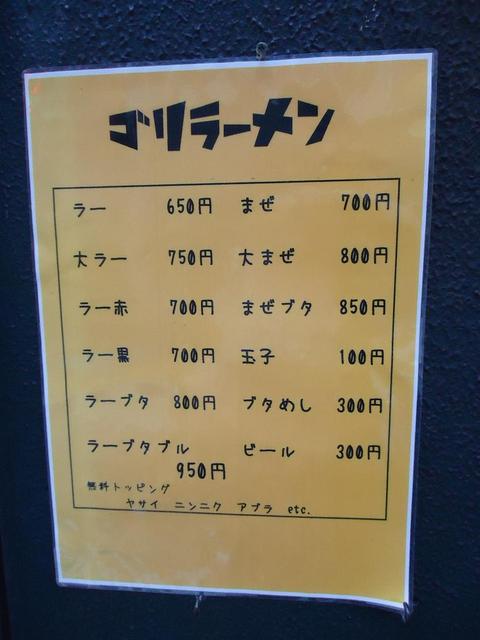 ゴリラーメン
ラー 650円 まぜ 700円
大ラー 750円 大まぜ 800円
ラー赤 700円 まぜブタ 850円
ラー黒 700円 玉子 100円
ラーブタ 800円 ブタめし 300円
ラーブタブル ビール 300円
950円
無料トッピング
ヤサイ ニンニク アブラ etc.